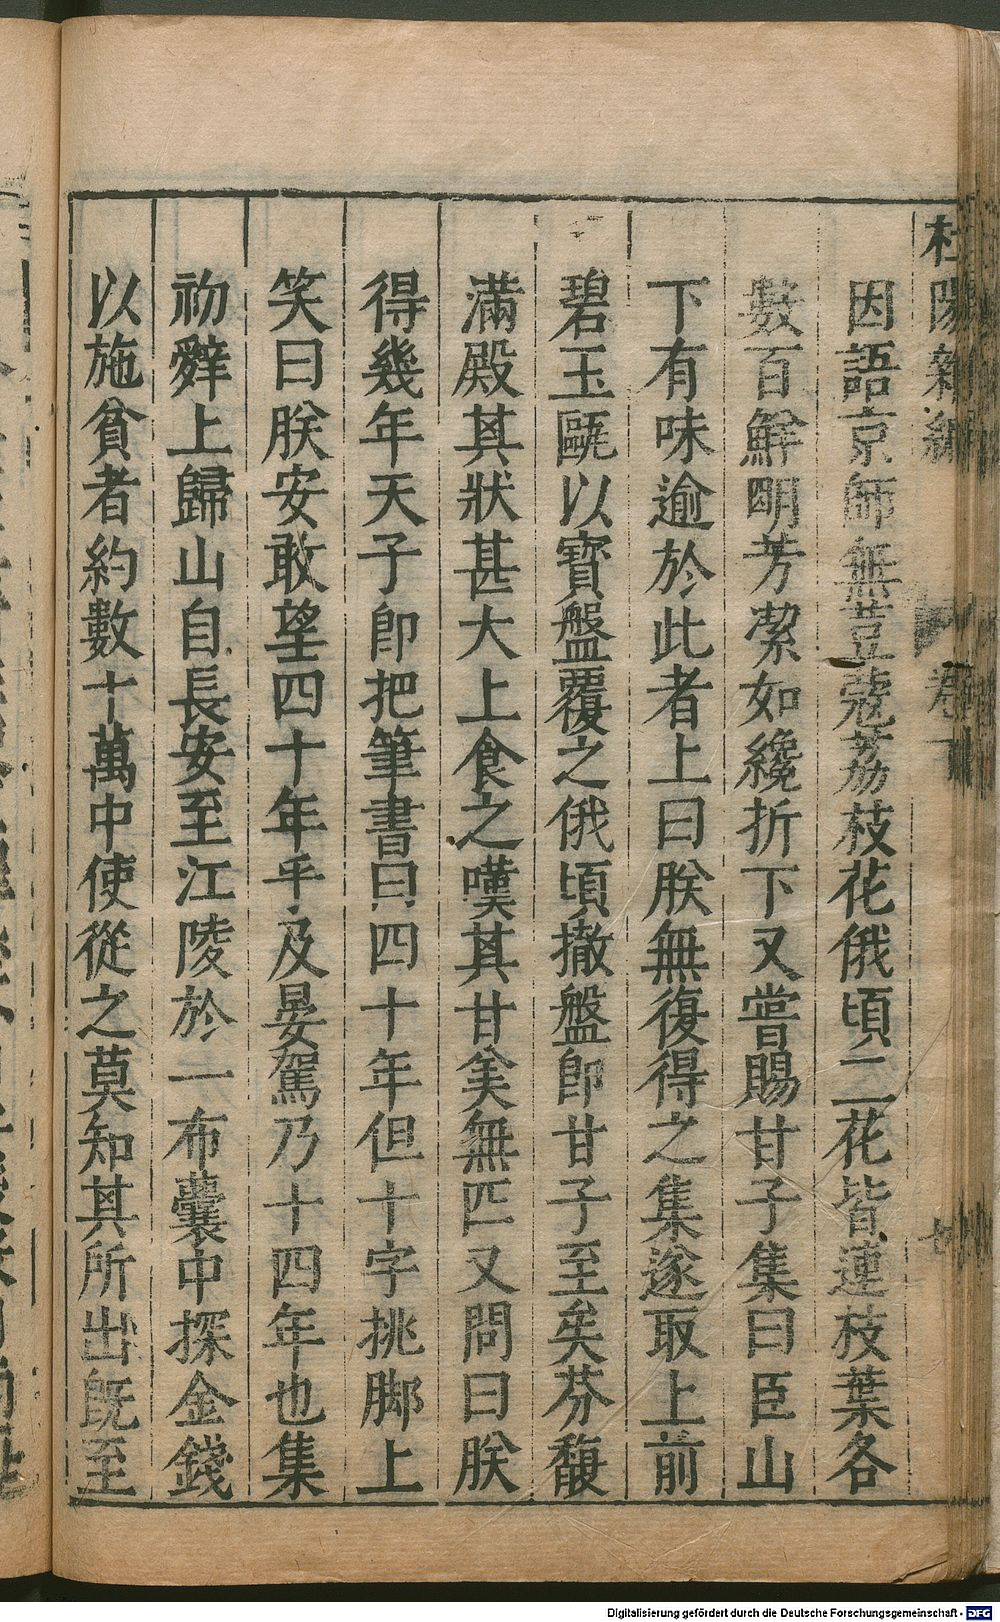 杜陽雜編
卷下
因語京師無荳蔻荔枝花俄頃二花皆連枝葉各
數百鮮明芳潔如纔折下又嘗賜甘子集曰臣山
下有味逾於此者上曰朕無復得之集遂取上前
碧玉甌以寶盤覆之俄頃撤盤即甘子至矣芬馥
滿殿其狀甚大上食之嘆其甘美無匹又問曰朕
得幾年天子即把筆書曰四十年但十字挑脚上
笑曰朕安敢望四十年乎及晏駕乃十四年也集
初辭上歸山自長安至江陵於一布囊中探金錢
以施貧者約數十萬中使從之莫知其所出既至
Digitalisierung gefördert durch die Deutsche Forschungsgemeinschaft - DFG